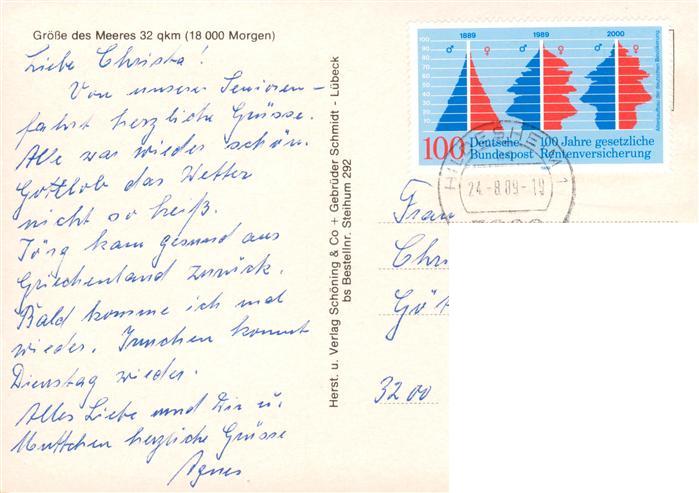 Größe des Meeres 32 qkm (18 000 Morgen)
Liebe Christa!
Von unserer Senioren-
fahrt herzliche Grüsse.
Alle war wieder schön.
Gottlob das Wetter
nicht so heiß.
Jörg kam gesund aus
Griechenland zurück.
Bald komme ich mal
wieder. Irmchen kommt
Dienstag wieder.
Alles Liebe und Dir u.
Muttchen herzliche Grüsse
Agnes
Herst. u. Verlag Schöning & Co + Gebrüder Schmidt - Lübeck
bs Bestellnr. Steihum 292
1889 1989 2000
♂ ♀ ♂ ♀ ♂ ♀
90
80
70
60
50
40
30
20
10
Altersaufbau der deutschen Bevölkerung
100 Deutsche Bundespost
100 Jahre gesetzliche
Rentenversicherung
HILDESHEIM 1
24.-8.89-19
3200
Frau
Chri
Gö
3200